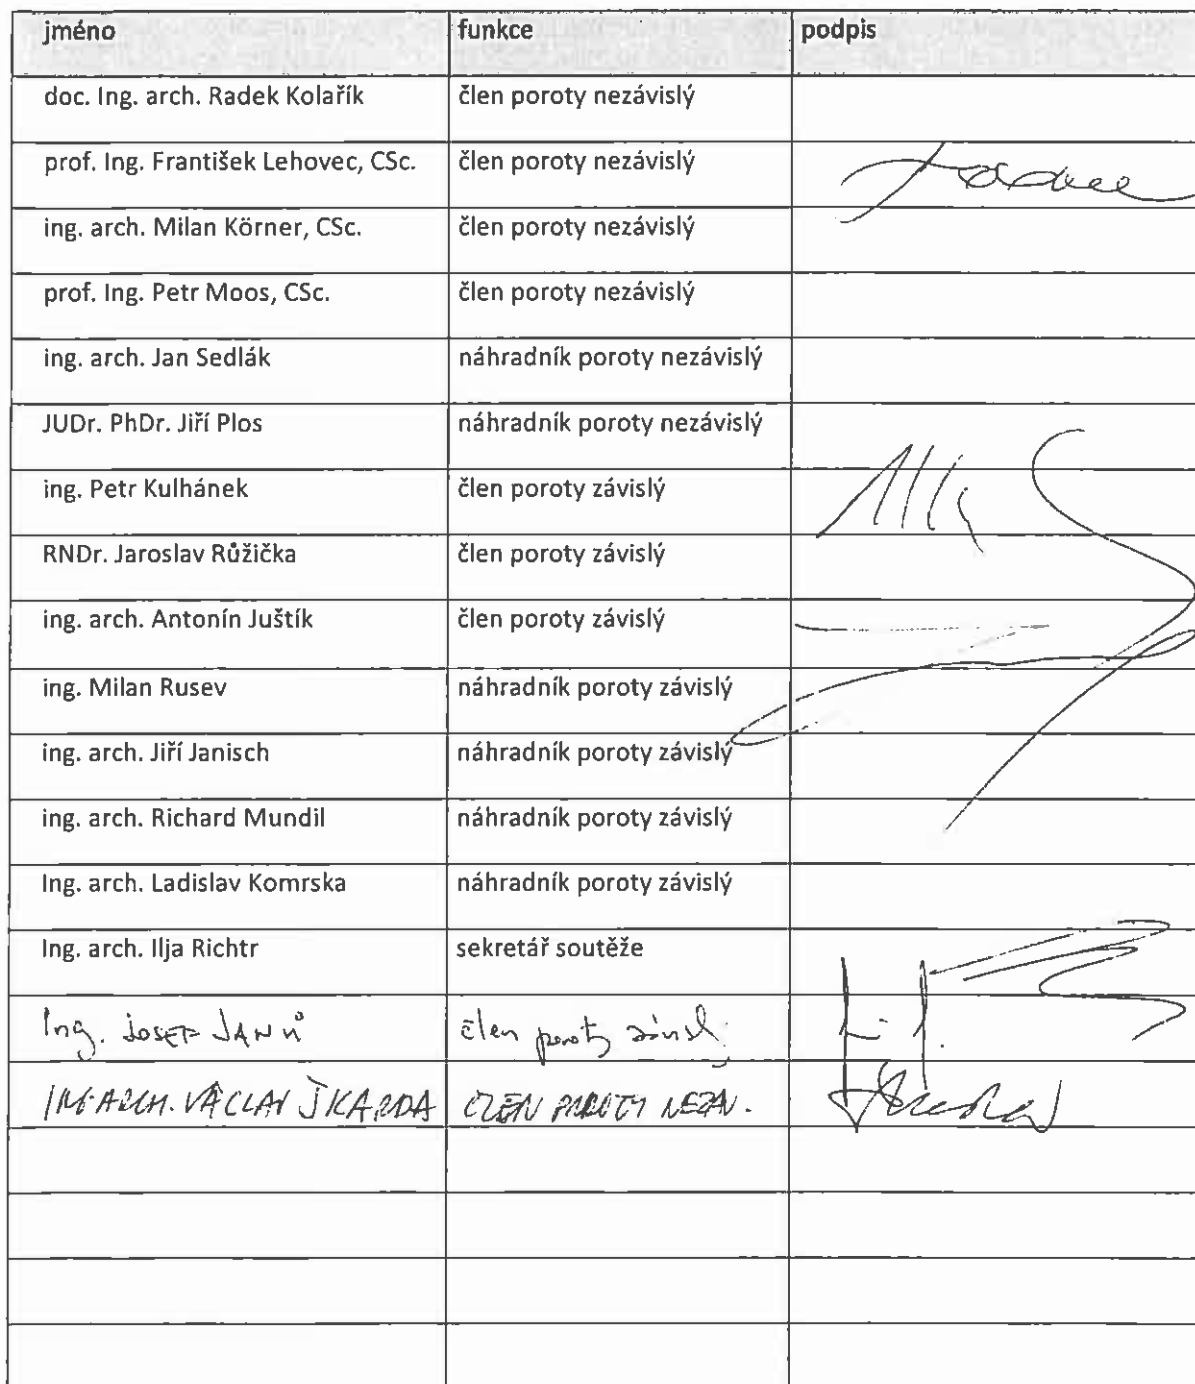 jméno funkce podpis
doc. Ing. arch. Radek Kolařík člen poroty nezávislý
prof. Ing. František Lehovec, CSc. člen poroty nezávislý
ing. arch. Milan Körner, CSc. člen poroty nezávislý
prof. Ing. Petr Moos, CSc. člen poroty nezávislý
ing. arch. Jan Sedlák náhradník poroty nezávislý
JUDr. PhDr. Jiří Plos náhradník poroty nezávislý
ing. Petr Kulhánek člen poroty závislý
RNDr. Jaroslav Růžička člen poroty závislý
ing. arch. Antonín Juštík člen poroty závislý
ing. Milan Rusev náhradník poroty závislý
ing. arch. Jiří Janisch náhradník poroty závislý
ing. arch. Richard Mundil náhradník poroty závislý
Ing. arch. Ladislav Komrska náhradník poroty závislý
Ing. arch. Ilja Richtr sekretář soutěže
Ing. JOSEF JANŮ člen poroty závislý
ING.ARCH. VÁCLAV ŠKARDA ČLEN POROTY NEZÁV.